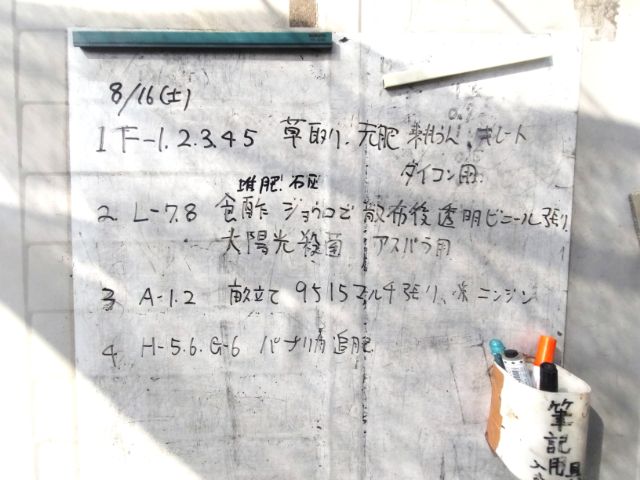 8/16(土)
1 F-1.2.3.4.5 草取り、元肥
ダイコン用
堆肥、石灰
2 L-7.8 食酢 ジョウロで散布後透明ビニール張り
太陽光殺菌 アスパラ用
3 A-1.2 畝立て 9515マルチ張り、 ニンジン
4 H-5.6.G-6 追肥
筆記
用具
入